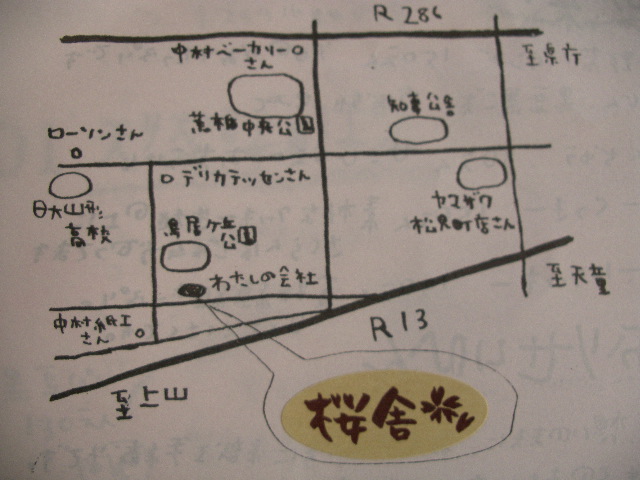 R 286
至県庁
中村ベーカリー
さん
知事公舎
蔵椎中央公園
ローソンさん
デリカテッセンさん
日大山形
高校
ヤマザワ
松見町店さん
鳥居ヶ丘
公園
わたしの会社
至天童
中村紙工
さん
R 13
至上山
桜舎